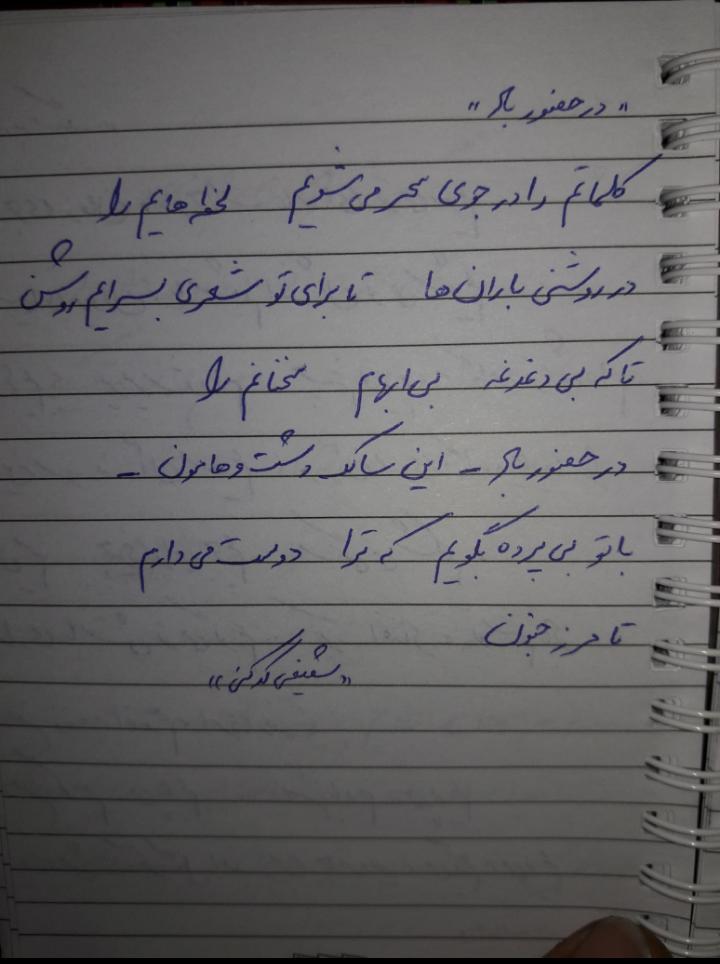 "در حضور باد"
کلماتم را در جوی سحر می‌شویم لحظه‌هایم را
در روشنی باران‌ها تا برای تو شعری بسرایم روشن
تا که بی دغدغه بی ابهام سخنانم را
در حضور باد - این سالک دشت و هامون -
با تو بی پرده بگویم که ترا دوست می‌دارم
تا مرز جنون
"شفیعی کدکنی"